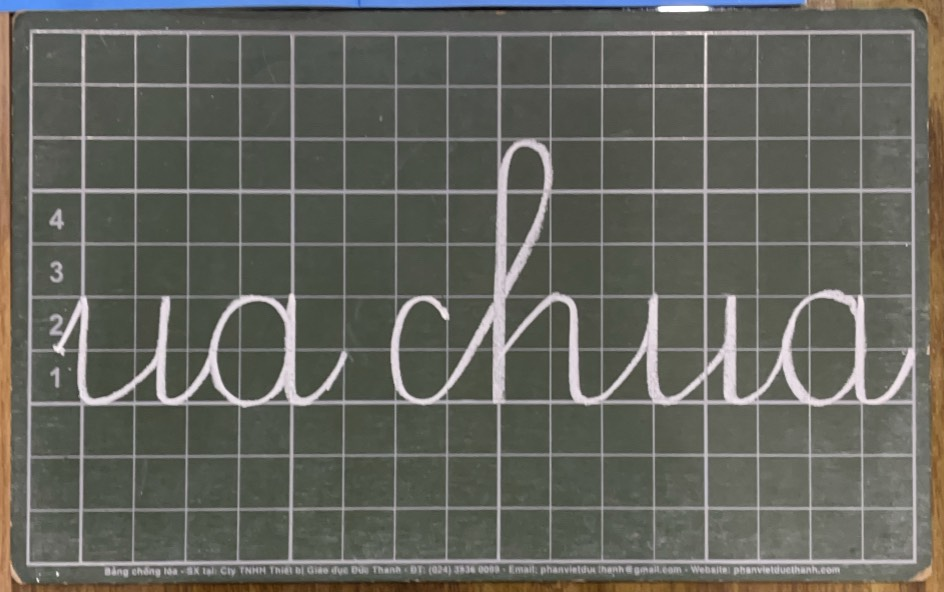 4
3
2
1
ua chua
Bảng chống lóa - SX tại: Cty TNHH Thiết bị Giáo dục Đức Thanh - ĐT: (024) 3936 0099 - Email: phanvietducthanh@gmail.com - Website: phanvietducthanh.com